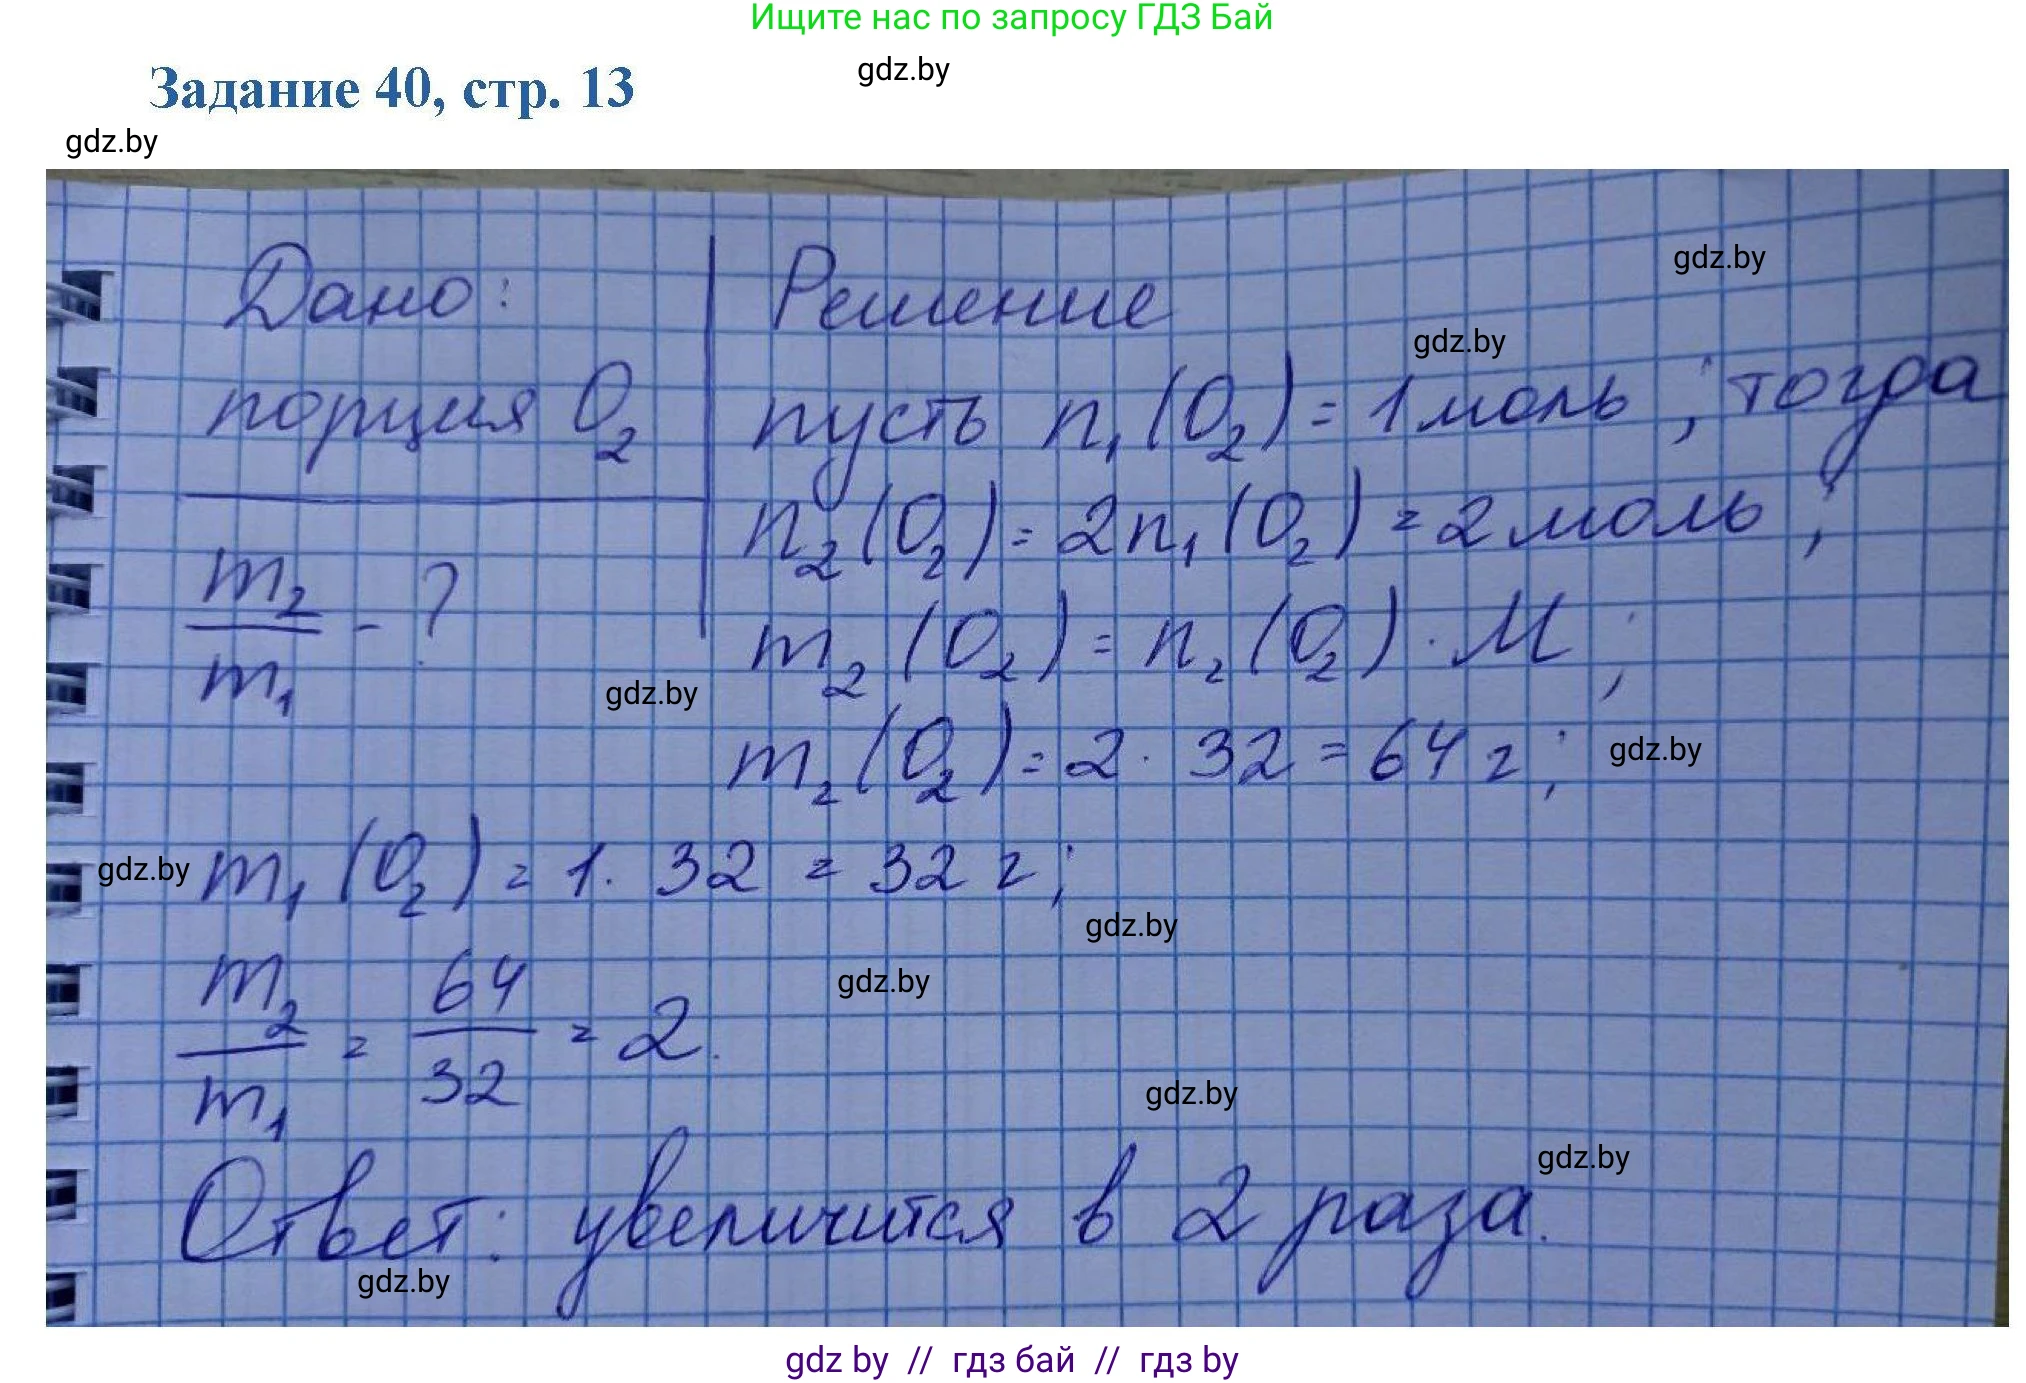 Ищите нас по запросу ГДЗ Бай
gdz.by
Задание 40, стр. 13
gdz.by
Дано:
порция O₂
m₂/m₁ - ?
Решение
gdz.by
gdz.by
пусть n₁(O₂) = 1 моль; тогда
n₂(O₂) = 2n₁(O₂) = 2 моль;
m₂(O₂) = n₂(O₂) · M;
gdz.by
m₂(O₂) = 2 · 32 = 64 г;
gdz.by
gdz.by
m₁(O₂) = 1 · 32 = 32 г;
gdz.by
gdz.by
m₂/m₁ = 64/32 = 2.
gdz.by
gdz.by
Ответ: увеличится в 2 раза.
gdz.by
gdz by // гдз бай // гдз by